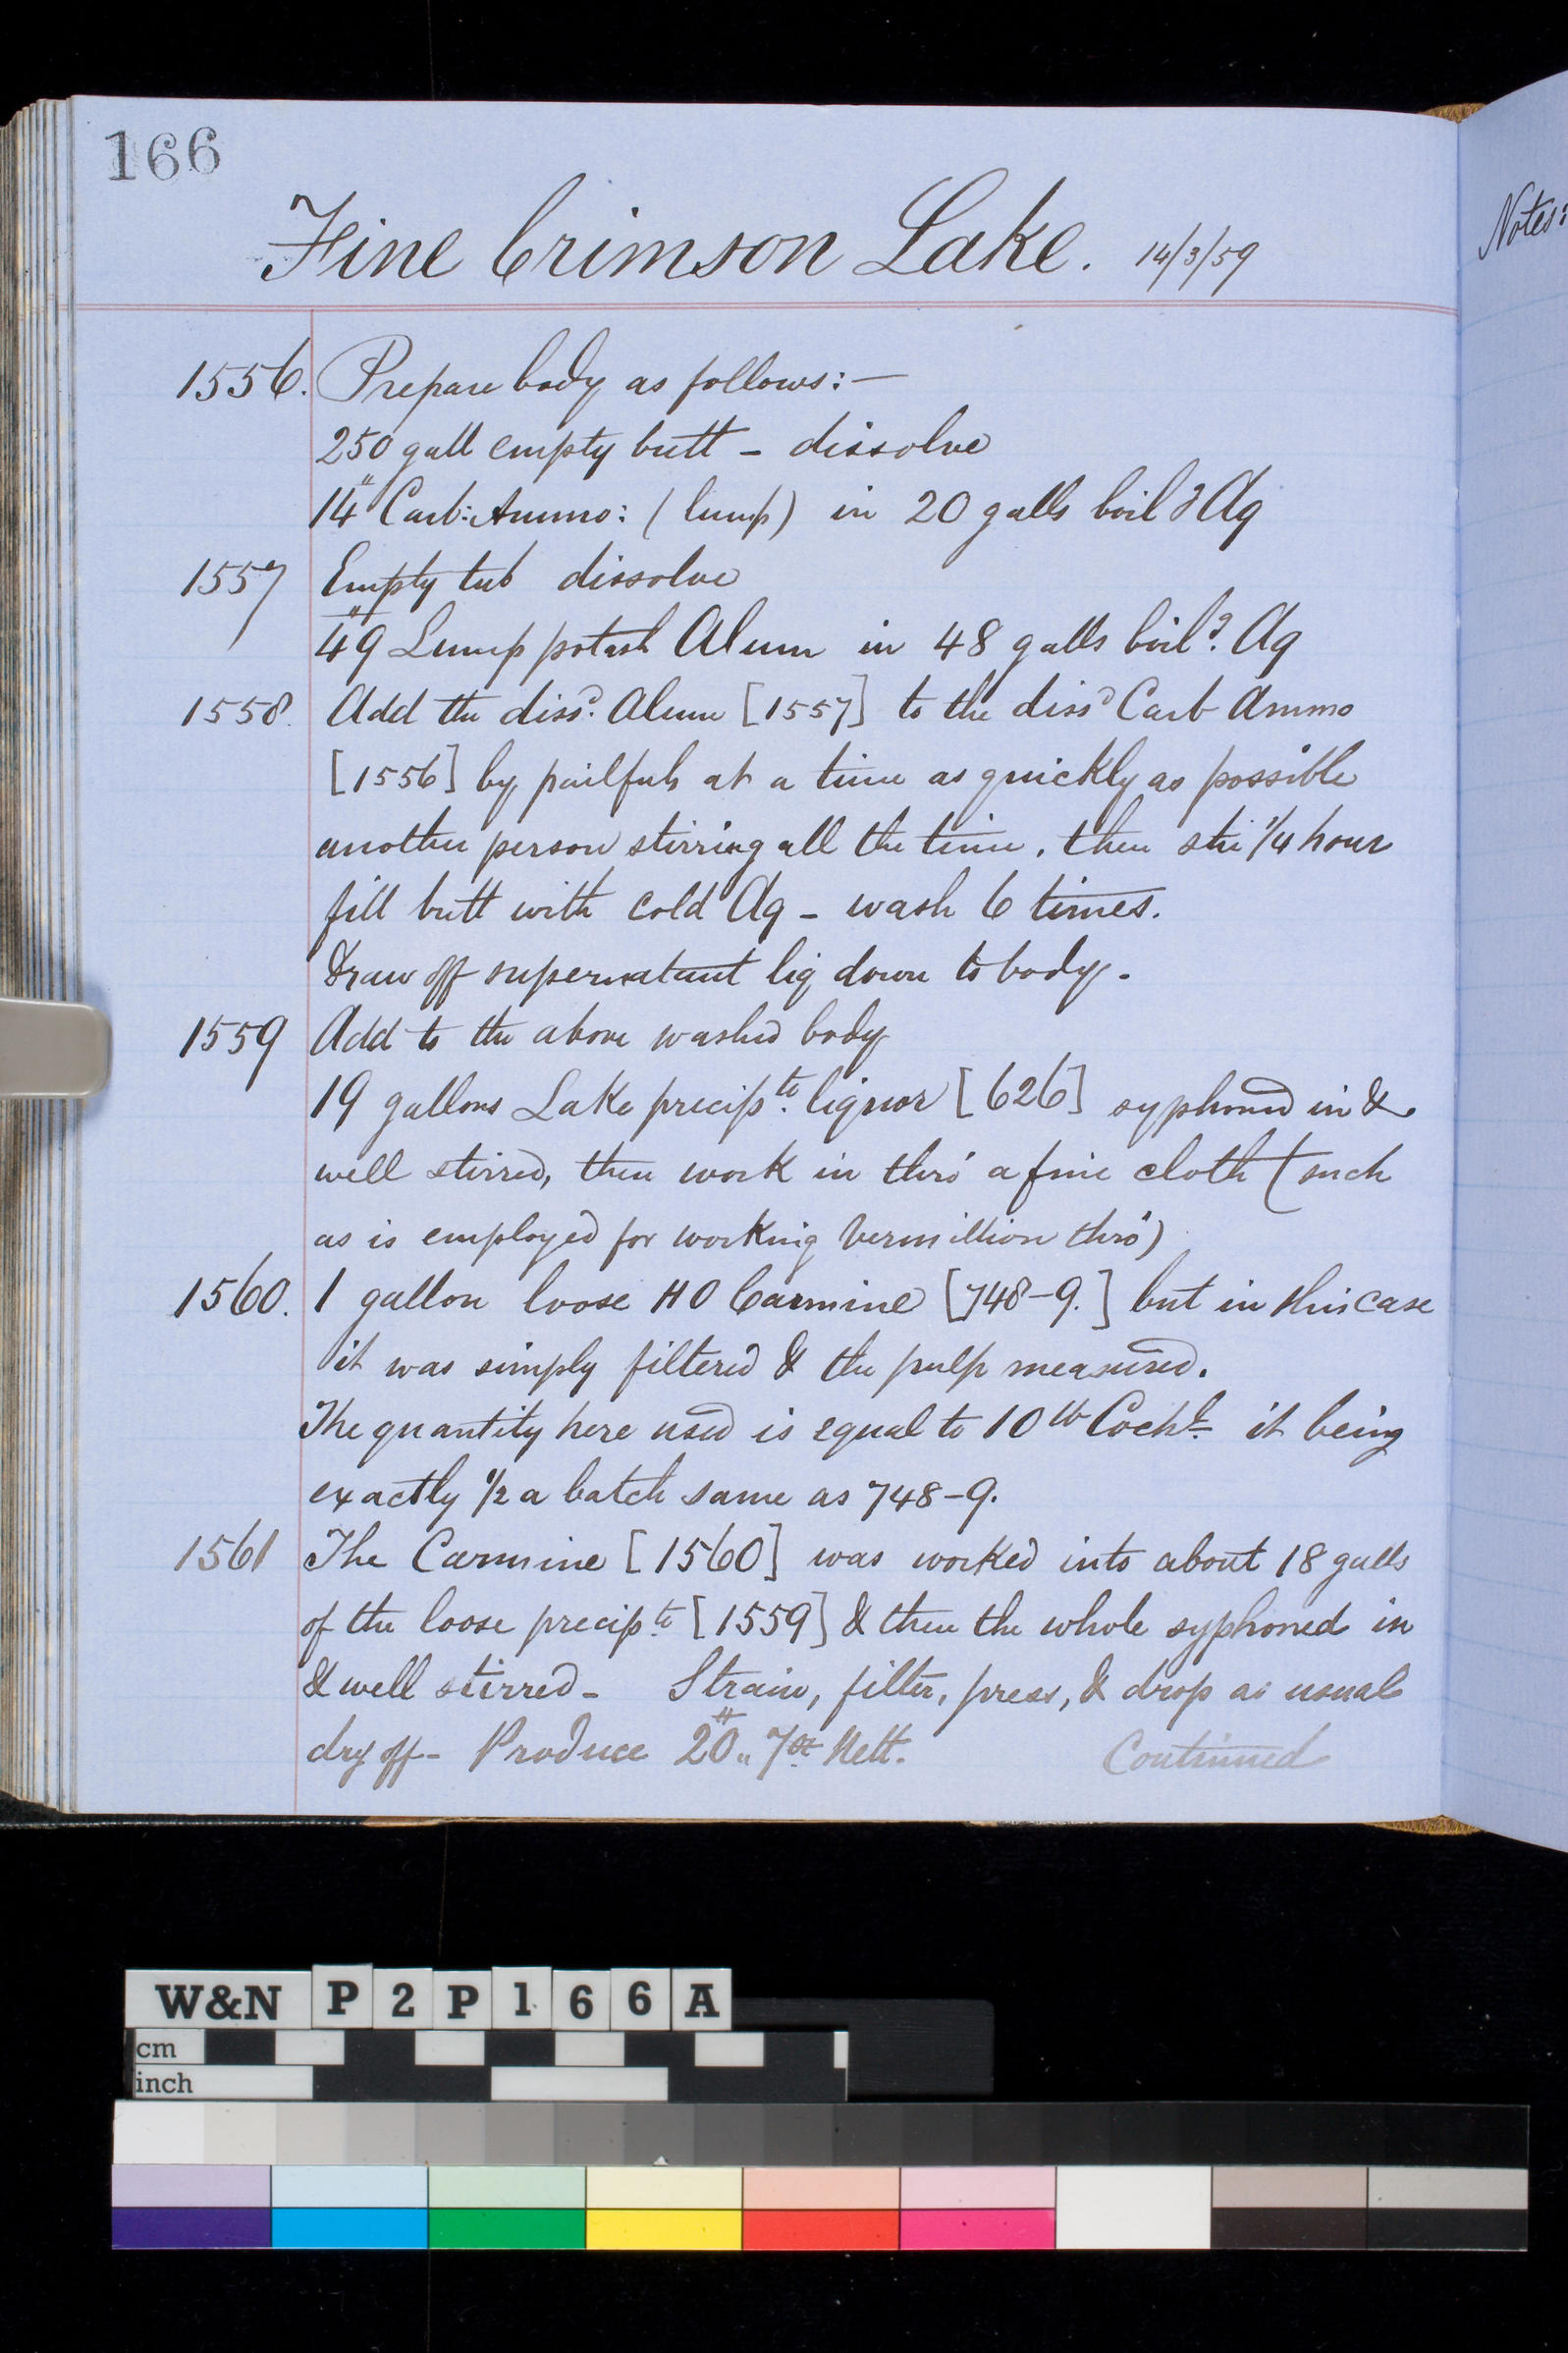 166
Fine Crimson Lake. 14/3/59
Notes:
1556. Prepare body as follows:—
250 gall empty butt – dissolve
14" Carb: Ammo: (lump) in 20 galls boilg Aq
1557 Empty tub dissolve
49" Lump potash Alum in 48 galls boilg. Aq
1558. Add the dissd. Alum [1557] to the dissd Carb Ammo
[1556] by pailfuls at a time as quickly as possible
another person stirring all the time, then stir 1/4 hour
fill butt with cold Aq – wash 6 times.
Draw off supernatant liq down to body.
1559 Add to the above washed body
19 gallons Lake precipte. liquor [626] syphoned in &
well stirred, then work in thro' a fine cloth (such
as is employed for working Vermillion thro')
1560. 1 gallon loose HO Carmine [748-9.] but in this case
it was simply filtered & the pulp measured.
The quantity here used is equal to 10 lb Cochl it being
exactly 1/2 a batch same as 748-9.
1561 The Carmine [1560] was worked into about 18 galls
of the loose precipte [1559] & then the whole syphoned in
& well stirred – Strain, filter, press, & drop as usual
dry off – Produce 20# " 7 oz Nett. Continued
W&N P2P166A
cm
inch